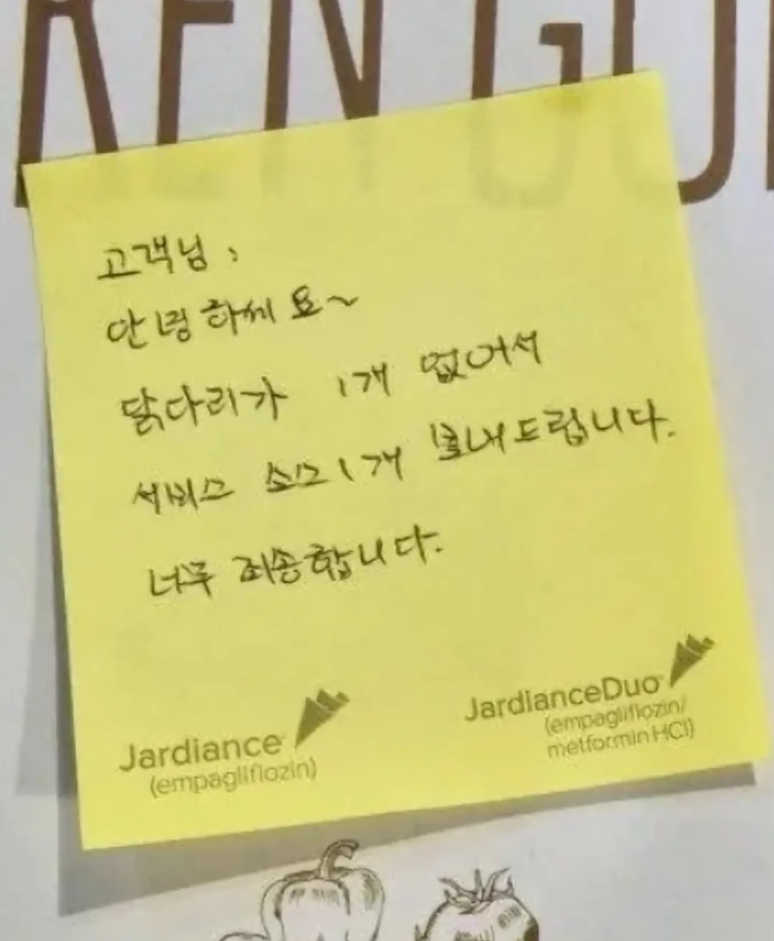 KEN GO
고객님,
안녕하세요~
닭다리가 1개 없어서
서비스 소스 1개 보내드립니다.
너무 죄송합니다.
Jardiance
(empagliflozin)
JardianceDuo
(empagliflozin/
metformin HCl)